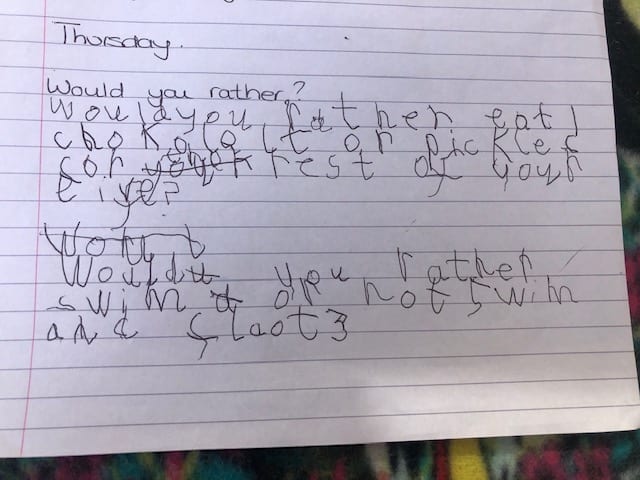 Thursday.
Would you rather?
Would you rather eat
chokolat or pickles
for rest of your
life?
Would you rather
swim or not swim
and float?